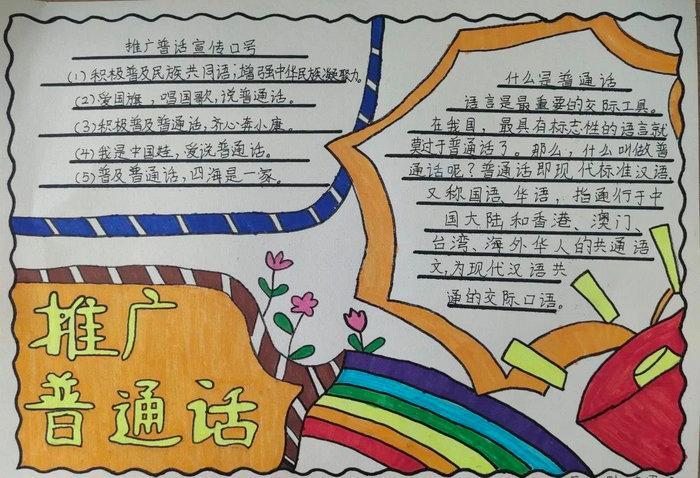 推广普话宣传口号
(1)积极普及民族共同语,增强中华民族凝聚力。
(2)爱国旗,唱国歌,说普通话。
(3)积极普及普通话,齐心奔小康。
(4)我是中国娃,爱说普通话。
(5)普及普通话,四海是一家。
什么是普通话
语言是最重要的交际工具。
在我国,最具有标志性的语言就
莫过于普通话了。那么,什么叫做普
通话呢?普通话即现代标准汉语
又称国语、华语,指通行于中
国大陆和香港、澳门、
台湾、海外华人的共通语
文,为现代汉语共
通的交际口语。
推广
普通话